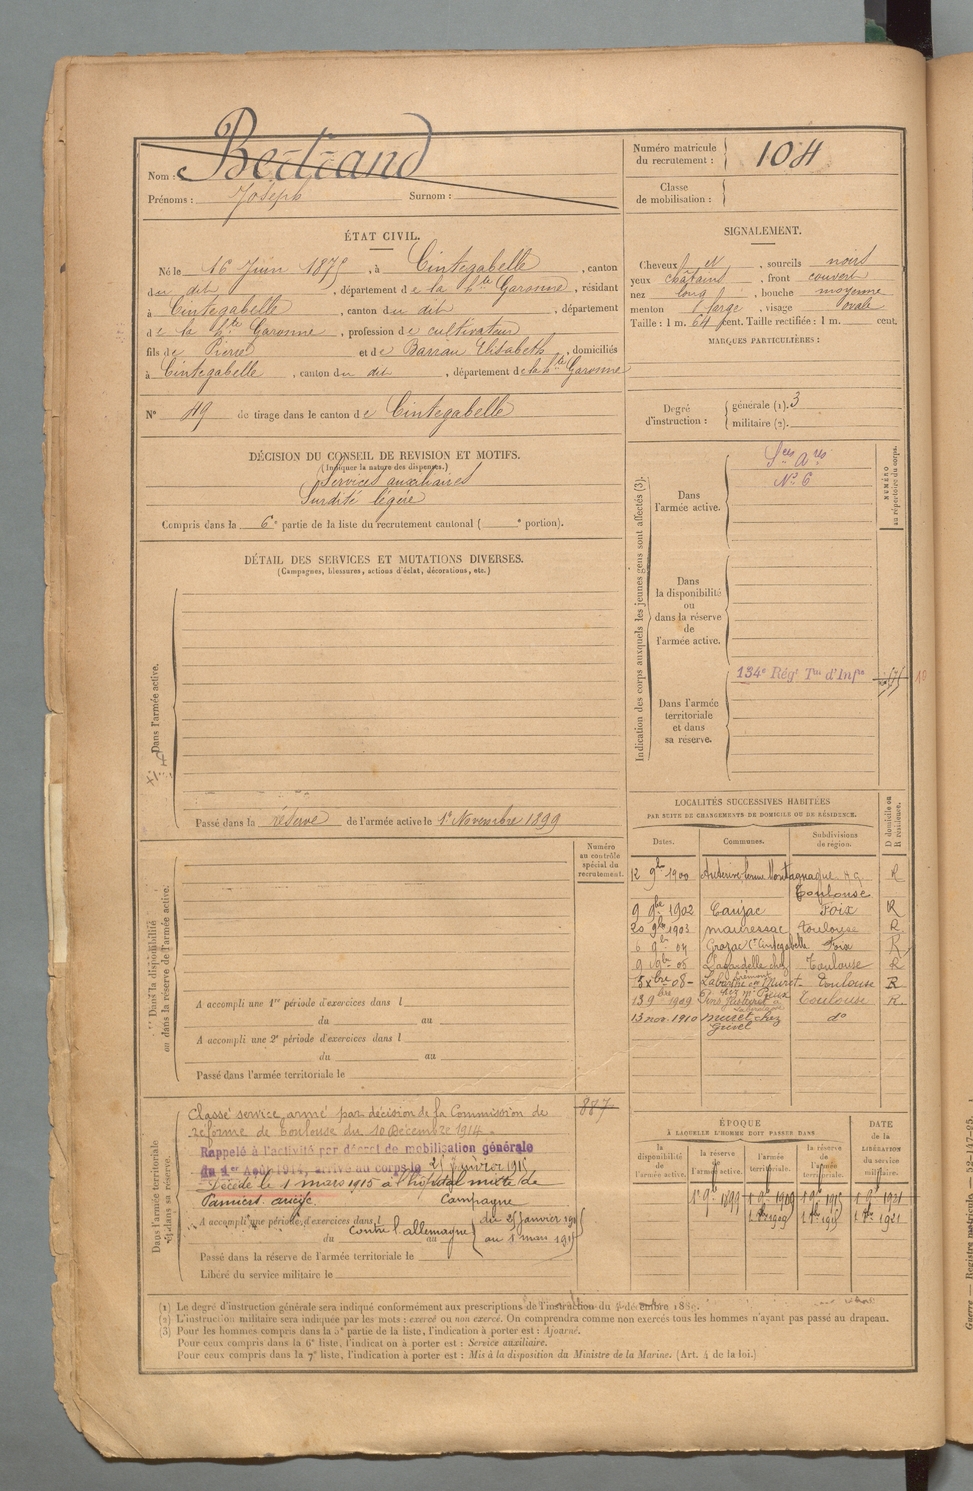 Nom : Bertrand
Prénoms : Joseph Surnom :
Numéro matricule du recrutement : 104
Classe de mobilisation :
ÉTAT CIVIL.
Né le 16 Juin 1875, à Cintegabelle, canton
du dit, département de la hte Garonne, résidant
à Cintegabelle, canton du dit, département
de la hte Garonne, profession de cultivateur
fils de Pierre et de Barrau Elisabeth, domiciliés
à Cintegabelle, canton du dit, département de la hte Garonne
N° 49 de tirage dans le canton de Cintegabelle
SIGNALEMENT.
Cheveux et, sourcils noirs
yeux châtains, front couvert
nez long, bouche moyenne
menton large, visage ovale
Taille : 1 m. 64 cent. Taille rectifiée : 1 m. cent.
MARQUES PARTICULIÈRES :
Degré d'instruction : générale (1). 3
militaire (2).
DÉCISION DU CONSEIL DE REVISION ET MOTIFS.
(Indiquer la nature des dispenses.)
Services auxiliaires
Surdité légère
Compris dans la 6e partie de la liste du recrutement cantonal ( e portion).
DÉTAIL DES SERVICES ET MUTATIONS DIVERSES.
(Campagnes, blessures, actions d'éclat, décorations, etc.)
Dans l'armée active.
Passé dans la réserve de l'armée active le 1er Novembre 1899
Indication des corps auxquels les jeunes gens sont affectés (3).
NUMÉRO au répertoire du corps.
Dans l'armée active.
Sces Ares
N° 6
Dans la disponibilité ou dans la réserve de l'armée active.
Dans l'armée territoriale et dans sa réserve.
134e Régt Tal d'Infie
LOCALITÉS SUCCESSIVES HABITÉES
PAR SUITE DE CHANGEMENTS DE DOMICILE OU DE RÉSIDENCE.
Dates. Communes. Subdivisions de région. D domicile ou R résidence.
12 9bre 1900 Auterive ferme Montagnaque H.G. Toulouse R
9 9bre 1902 Caujac Foix R
20 9bre 1903 Mauressac Toulouse R
6 9bre 04 Grazac Con Cintegabelle Foix R
9 9bre 05 Lagardelle chez Toulouse R
5 Xbre 08 Toulouse R
13 9bre 1909 Pins Justaret Toulouse R
13 nov. 1910 Muret chez do
Numéro au contrôle spécial du recrutement.
Dans la disponibilité ou dans la réserve de l'armée active.
A accompli une 1re période d'exercices dans l
du au
A accompli une 2e période d'exercices dans l
du au
Passé dans l'armée territoriale le
Dans l'armée territoriale et dans sa réserve.
887
Classé service armé par décision de la Commission de
réforme de Toulouse du 10 Décembre 1914.
Rappelé à l'activité par décret de mobilisation générale
du 1er Août 1914, arrivé au corps le 25 Janvier 1915
Décédé le 1 mars 1915 à l'hôpital mixte de
Pamiers. Ariège. Campagne
A accompli une période d'exercices dans l
contre l'allemagne du 25 janvier 1915
du au au 1 mars 1915
Passé dans la réserve de l'armée territoriale le
Libéré du service militaire le
ÉPOQUE
À LAQUELLE L'HOMME DOIT PASSER DANS
la disponibilité de l'armée active. la réserve de l'armée active. l'armée territoriale. la réserve de l'armée territoriale. DATE de la LIBÉRATION du service militaire.
1er 9bre 1899 1 9bre 1909 1 9bre 1915 1 9bre 1921
1909 1915 1921
(1) Le degré d'instruction générale sera indiqué conformément aux prescriptions de l'instruction du décembre 1889.
(2) L'instruction militaire sera indiquée par les mots : exercé ou non exercé. On comprendra comme non exercés tous les hommes n'ayant pas passé au drapeau.
(3) Pour les hommes compris dans la 5e partie de la liste, l'indication à porter est : Ajourné.
Pour ceux compris dans la 6e liste, l'indication à porter est : Service auxiliaire.
Pour ceux compris dans la 7e liste, l'indication à porter est : Mis à la disposition du Ministre de la Marine. (Art. 4 de la loi.)